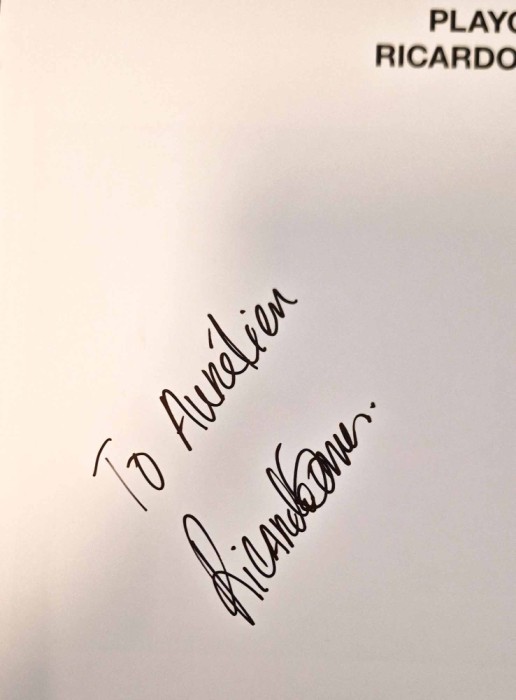 PLAYG
RICARDO
To Aurélien
Ricardo Gomes.